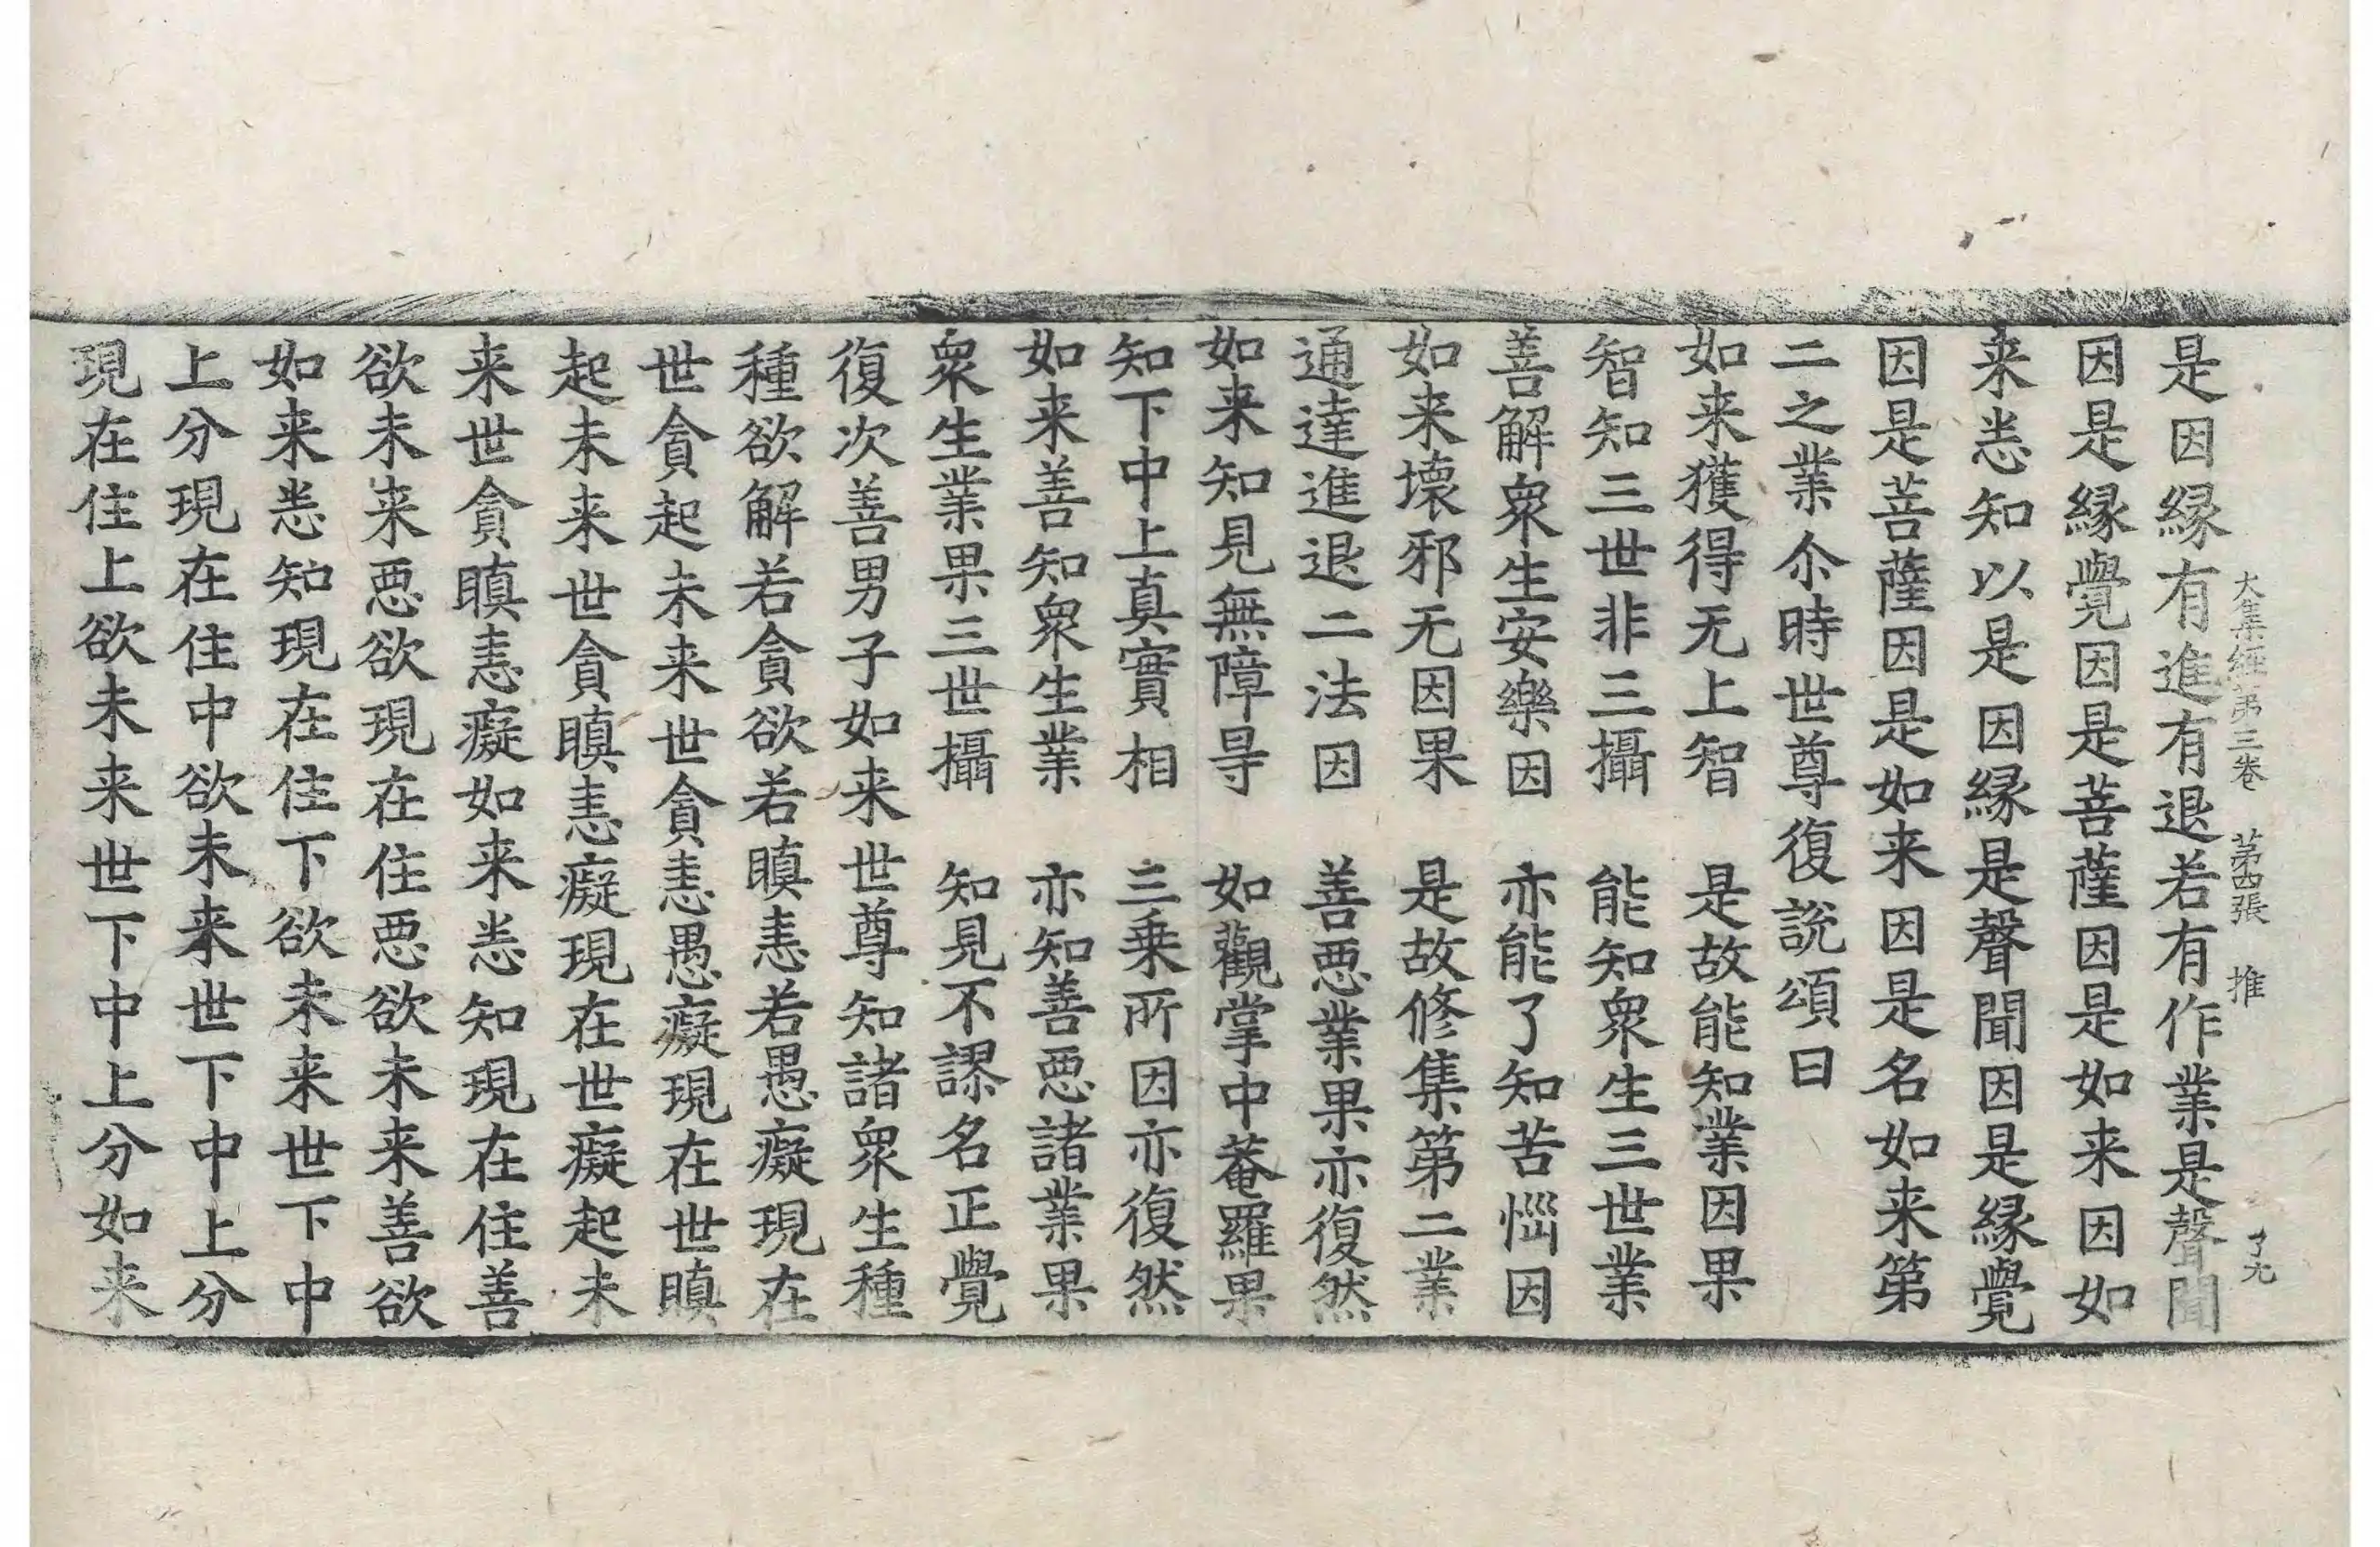 大集經第三卷　第四張　推　了九
是因縁有進有退若有作業是聲聞
因是縁覺因是菩薩因是如来因如
来悉知以是因縁是聲聞因是縁覺
因是菩薩因是如来因是名如来第
二之業尒時世尊復說頌曰
如来獲得无上智　是故能知業因果
智知三世非三攝　能知衆生三世業
善解衆生安樂因　亦能了知苦惱因
如来壞邪无因果　是故修集第二業
通達進退二法因　善惡業果亦復然
如来知見無障㝵　如觀掌中菴羅果
知下中上真實相　三乗所因亦復然
如来善知衆生業　亦知善惡諸業果
衆生業果三世攝　知見不謬名正覺
復次善男子如来世尊知諸衆生種
種欲解若貪欲若瞋恚若愚癡現在
世貪起未来世貪恚愚癡現在世瞋
起未来世貪瞋恚癡現在世癡起未
来世貪瞋恚癡如来悉知現在住善
欲未来惡欲現在住惡欲未来善欲
如来悉知現在住下欲未来世下中
上分現在住中欲未来世下中上分
現在住上欲未来世下中上分如来